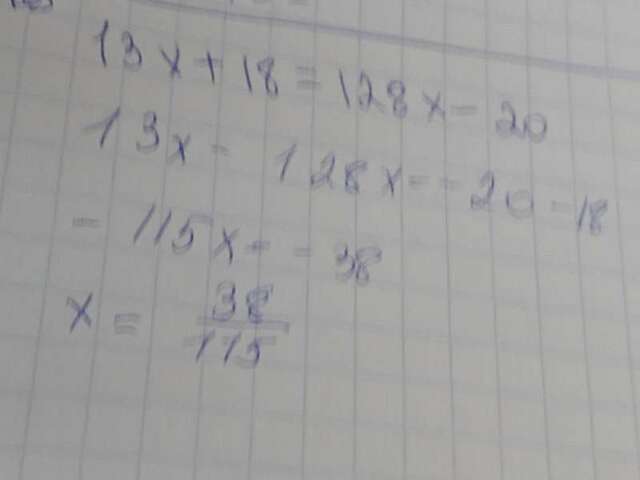 13x + 18 = 128x - 20
13x - 128x = -20 - 18
- 115x = - 38
x = 38/115